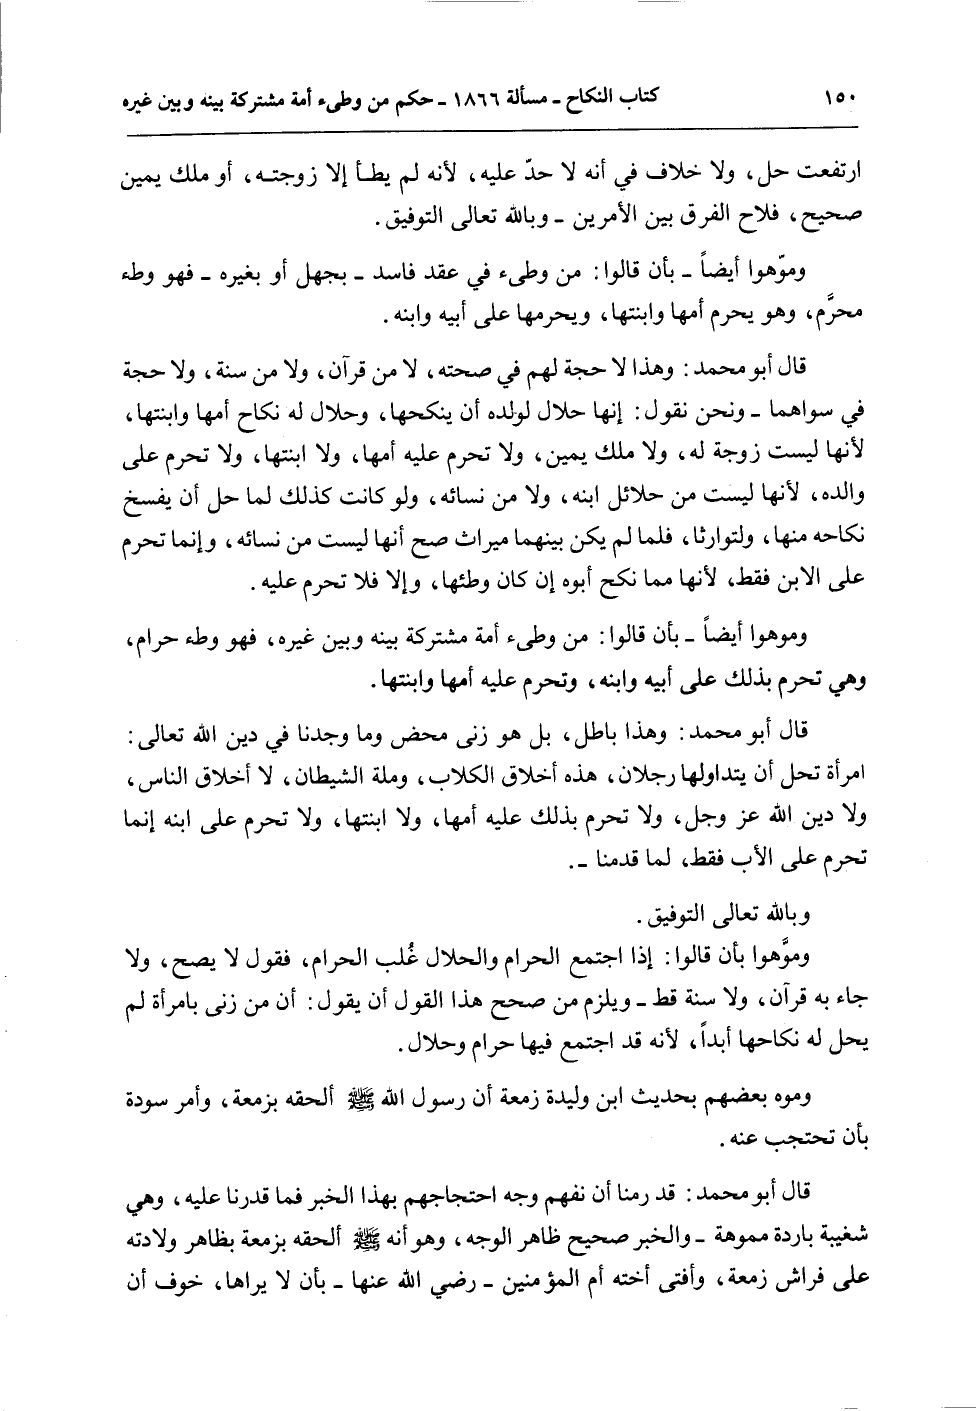 ١٥٠ كتاب النكاح ـ مسألة ١٨٦٦ ـ حكم من وطىء أمة مشتركة بينه وبين غيره
ارتفعت حل، ولا خلاف في أنه لا حدّ عليه، لأنه لم يطـأ إلا زوجتـه، أو ملك يمين
صحيح، فلاح الفرق بين الأمرين ـ وبالله تعالى التوفيق.
وموّهوا أيضاً ـ بأن قالوا: من وطىء في عقد فاسد ـ بجهل أو بغيره ـ فهو وطء
محرَّم، وهو يحرم أمها وابنتها، ويحرمها على أبيه وابنه.
قال أبو محمد: وهذا لا حجة لهم في صحته، لا من قرآن، ولا من سنة، ولا حجة
في سواهما ـ ونحن نقول: إنها حلال لولده أن ينكحها، وحلال له نكاح أمها وابنتها،
لأنها ليست زوجة له، ولا ملك يمين، ولا تحرم عليه أمها، ولا ابنتها، ولا تحرم على
والده، لأنها ليست من حلائل ابنه، ولا من نسائه، ولو كانت كذلك لما حل أن يفسخ
نكاحه منها، ولتوارثا، فلما لم يكن بينهما ميراث صح أنها ليست من نسائه، وإنما تحرم
على الابن فقط، لأنها مما نكح أبوه إن كان وطئها، وإلا فلا تحرم عليه.
وموهوا أيضاً ـ بأن قالوا: من وطىء أمة مشتركة بينه وبين غيره، فهو وطء حرام،
وهي تحرم بذلك على أبيه وابنه، وتحرم عليه أمها وابنتها.
قال أبو محمد: وهذا باطل، بل هو زنى محض وما وجدنا في دين الله تعالى:
امرأة تحل أن يتداولها رجلان، هذه أخلاق الكلاب، وملة الشيطان، لا أخلاق الناس،
ولا دين الله عز وجل، ولا تحرم بذلك عليه أمها، ولا ابنتها، ولا تحرم على ابنه إنما
تحرم على الأب فقط، لما قدمنا ـ.
وبالله تعالى التوفيق.
وموَّهوا بأن قالوا: إذا اجتمع الحرام والحلال غُلب الحرام، فقول لا يصح، ولا
جاء به قرآن، ولا سنة قط ـ ويلزم من صحح هذا القول أن يقول: أن من زنى بامرأة لم
يحل له نكاحها أبداً، لأنه قد اجتمع فيها حرام وحلال.
وموه بعضهم بحديث ابن وليدة زمعة أن رسول الله ﷺ ألحقه بزمعة، وأمر سودة
بأن تحتجب عنه.
قال أبو محمد: قد رمنا أن نفهم وجه احتجاجهم بهذا الخبر فما قدرنا عليه، وهي
شغيبة باردة مموهة ـ والخبر صحيح ظاهر الوجه، وهو أنه ﷺ ألحقه بزمعة بظاهر ولادته
على فراش زمعة، وأفتى أخته أم المؤمنين ـ رضي الله عنها ـ بأن لا يراها، خوف أن